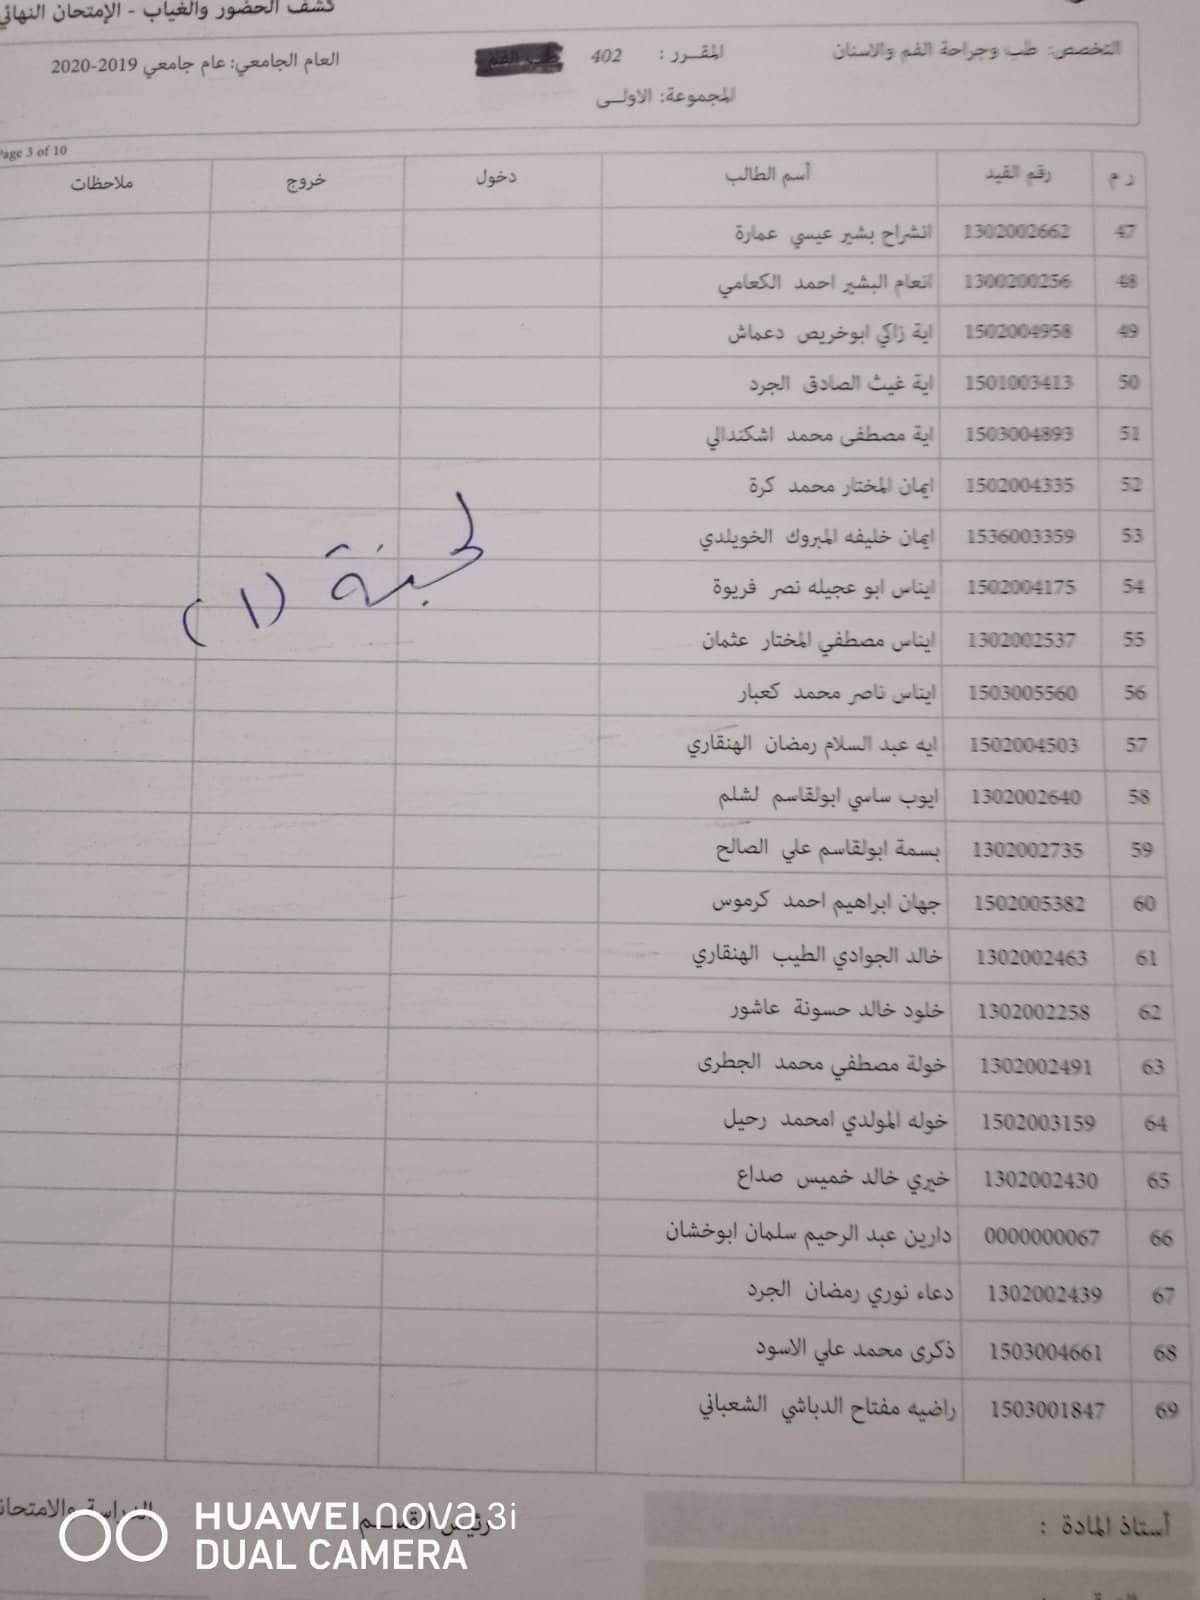 كشف الحضور والغياب - الإمتحان النهائي
التخصص: طب وجراحة الفم والاسنان المقـرر : 402 طب الفم العام الجامعي: عام جامعي 2019-2020
المجموعة: الاولـى
Page 3 of 10
ر م رقم القيد أسم الطالب دخول خروج ملاحظات
47 1302002662 انشراح بشير عيسي عمارة
48 1300200256 انعام البشير احمد الكعامي
49 1502004958 اية زاكي ابوخريص دعماش
50 1501003413 اية غيث الصادق الجرد
51 1503004893 اية مصطفى محمد اشكندالي
52 1502004335 ايمان المختار محمد كرة
53 1536003359 ايمان خليفه المبروك الخويلدي
54 1502004175 ايناس ابو عجيله نصر فريوة
55 1302002537 ايناس مصطفي المختار عثمان
56 1503005560 ايناس ناصر محمد كعبار
57 1502004503 ايه عبد السلام رمضان الهنقاري
58 1302002640 ايوب ساسي ابولقاسم لشلم
59 1302002735 بسمة ابولقاسم علي الصالح
60 1502005382 جهان ابراهيم احمد كرموس
61 1302002463 خالد الجوادي الطيب الهنقاري
62 1302002258 خلود خالد حسونة عاشور
63 1302002491 خولة مصطفي محمد الجطرى
64 1502003159 خوله المولدي امحمد رحيل
65 1302002430 خيري خالد خميس صداع
66 0000000067 دارين عبد الرحيم سلمان ابوخشان
67 1302002439 دعاء نوري رمضان الجرد
68 1503004661 ذكرى محمد علي الاسود
69 1503001847 راضيه مفتاح الدباشي الشعباني
لجنة (١)
أستاذ المادة : رئيس القسـم الدراسة والامتحانات
HUAWEI nova 3i
DUAL CAMERA